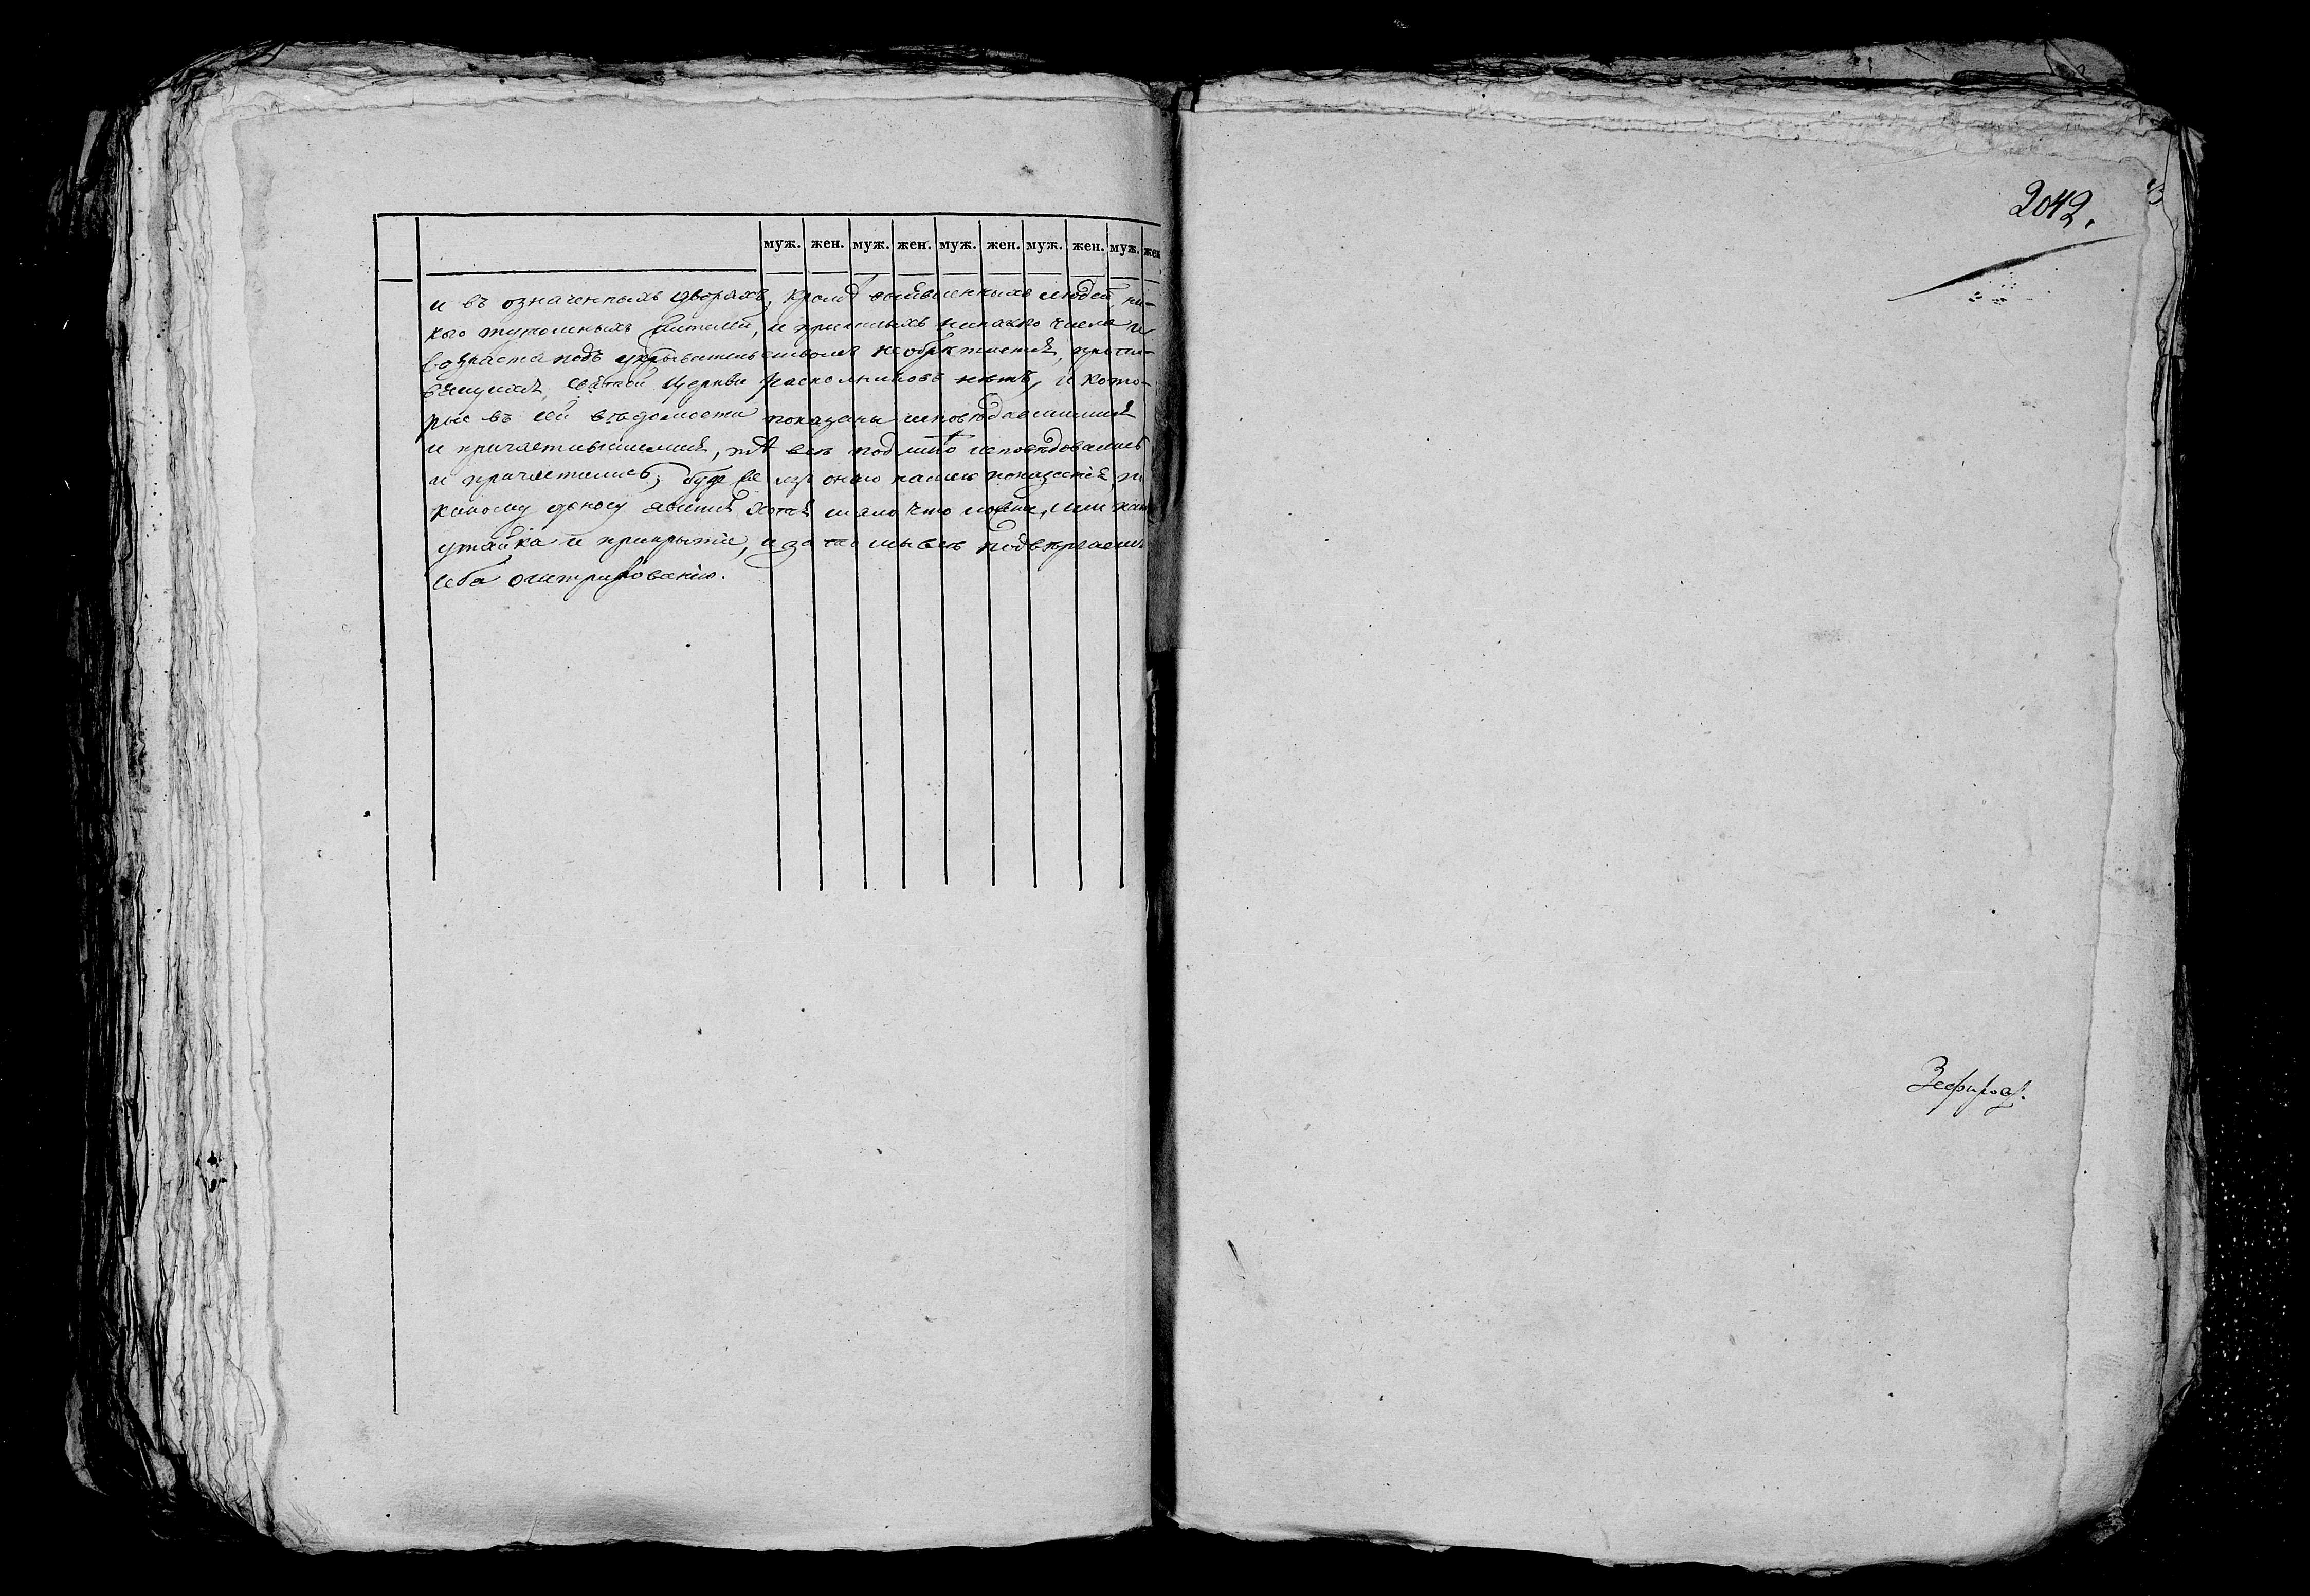 муж. жен. муж. жен. муж. жен. муж. жен. муж. жен
и въ означенныхъ дворахъ, кромѣ объявленныхъ людей, ни-
кого тутошныхъ жителей, и пришлыхъ никакого чина и
возраста подъ укрывательствомъ необрѣтается, проти-
вящихся святой церкви раскольниковъ нѣтъ, и кото-
рые въ сей вѣдомости показаны исповѣдавшимися
и причастившимися, тѣ всѣ подлинно исповѣдовались
и причастились; буде же изъ онаго нашего показанія, по
какому доносу явится хотя мало что ложно, или какая
утайка и прикрытіе, и за то мы всѣ подвѣргаемъ
себя
2042.
Зефировъ.